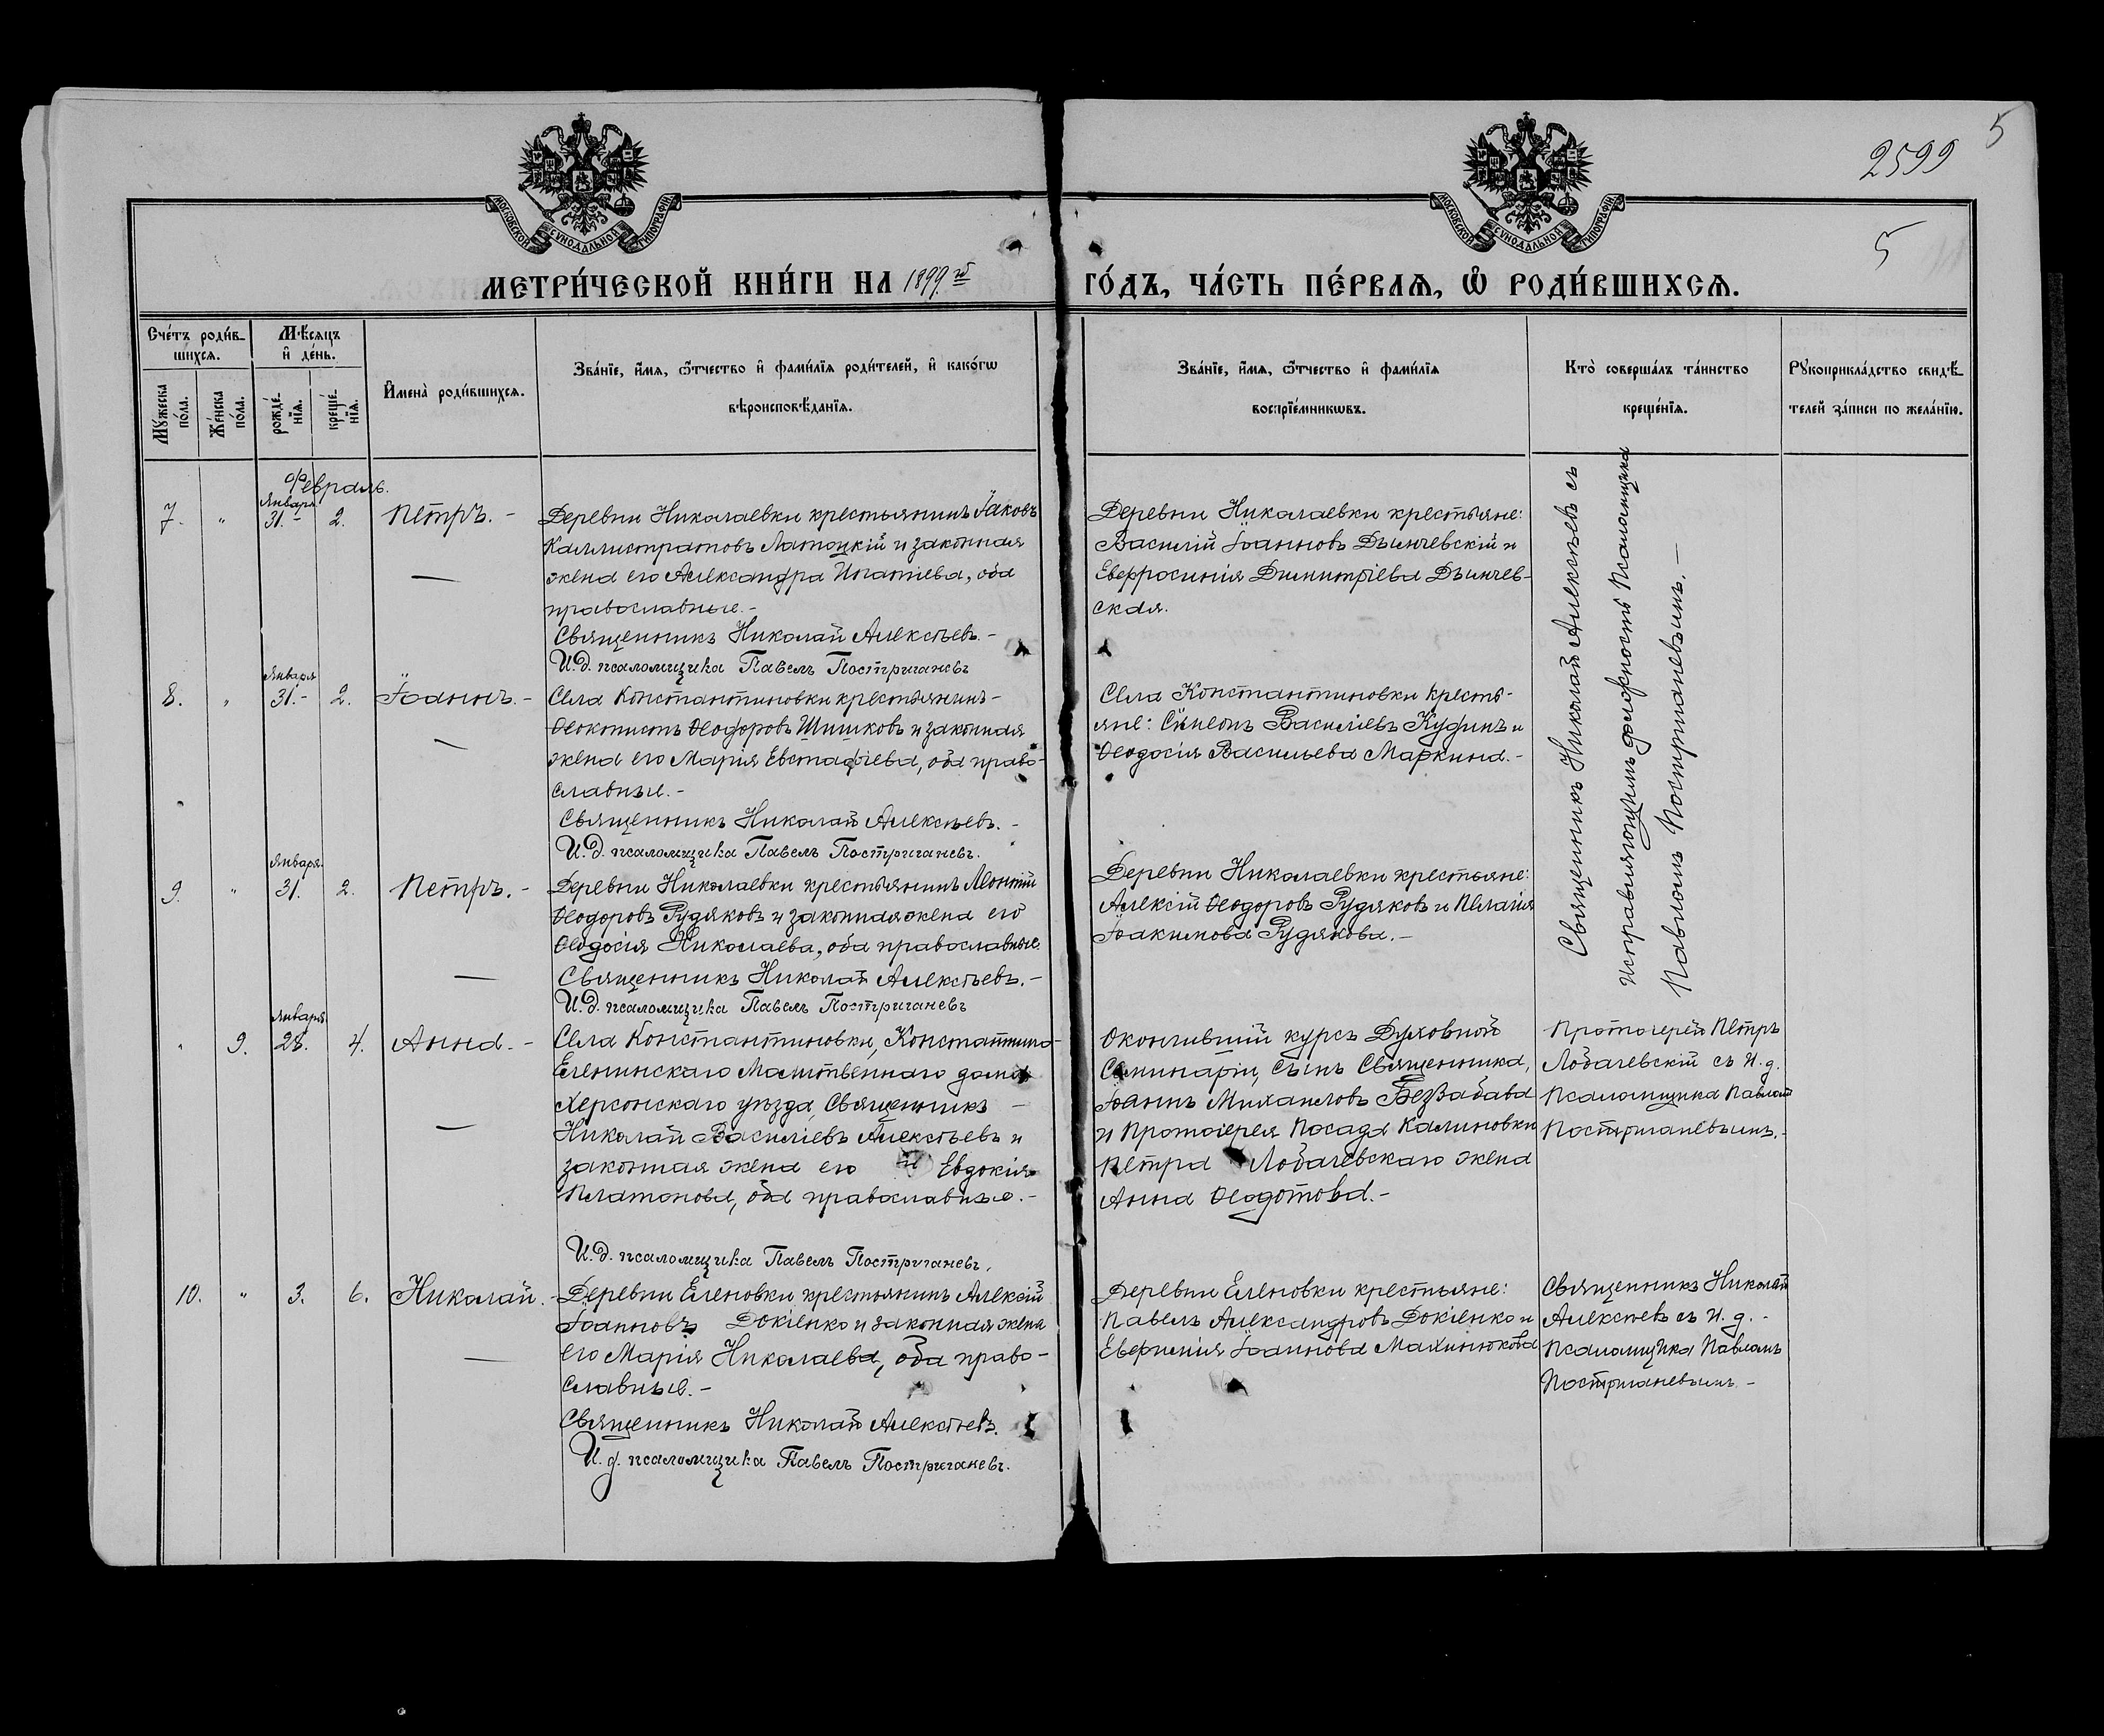 5
2599
5
МОСКОВСКОЙ СѴНОДАЛЬНОЙ ТИПОГРАФІИ
МОСКОВСКОЙ СѴНОДАЛЬНОЙ ТИПОГРАФІИ
МЕТРИ́ЧЕСКОЙ КНИ́ГИ НА 1899.й
ГО́ДЪ, ЧА́СТЬ ПЕ́РВАѦ, Ѡ҆ РОДИ́ВШИХСѦ.
Сче́тъ роди́в-
шихсѧ.
Мѣ́сѧцъ
и҆ де́нь.
Мꙋ́жеска
по́ла.
Же́нска
по́ла.
рожде́-
нїѧ.
креще́-
нїѧ.
И҆мена̀ роди́вшихсѧ.
Зва́нїе, и҆́мѧ, ѻ҆́тчество и҆ фами́лїѧ роди́телей, и҆ како́гѡ
вѣроисповѣ́данїѧ.
Зва́нїе, и҆́мѧ, ѻ҆́тчество и҆ фами́лїѧ
воспрїе́мникѡвъ.
Кто̀ соверша́лъ та́инство
креще́нїѧ.
Рꙋкоприкла́дство свидѣ́-
телей за́писи по жела́нїю.
Февраль.
7. " Января 31.- 2. Петръ.-
Деревни Николаевки крестьянинъ Іаковъ
Каллистратовъ Латоцкій и законная
жена его Александра Игнатіева, оба
православные.-
Священникъ Николай Алексѣевъ.-
И.д. псаломщика Павелъ Постригачевъ
Деревни Николаевки крестьяне:
Василій Іоанновъ Дымчевскій и
Евфросинія Димитріева Дымчев-
ская.
8. " Января 31.- 2. Іоаннъ.-
Села Константиновки крестьянинъ-
Ѳеоктистъ Ѳеодоровъ Шишковъ и законная
жена его Марія Евстафіева, оба право-
славные.-
Священникъ Николай Алексѣевъ.-
И.д. псаломщика Павелъ Постригачевъ.
Села Константиновки кресть-
яне: Сѵмеонъ Василіевъ Кудинъ и
Ѳеодосія Васильева Маркина.-
9. " Января 31. 2. Петръ.-
Деревни Николаевки крестьянинъ Леонтій
Ѳеодоровъ Рудяковъ и законная жена его
Ѳеодосія Николаева, оба православные.
Священникъ Николай Алексѣевъ.-
И.д. псаломщика Павелъ Постригачевъ
Деревни Николаевки крестьяне:
Алексій Ѳеодоровъ Рудяковъ и Пелагія
Іоакимова Рудякова.-
Священникъ Николай Алексѣевъ съ
Исправляющимъ должность Псаломщика
Павломъ Постригачевымъ.-
" 9. Января 28. 4. Анна.-
Села Константиновки, Константино-
Еленинскаго Молитвеннаго дома
Херсонскаго уѣзда, Священникъ -
Николай Василіевъ Алексѣевъ и
законная жена его Евдокія
Платонова, оба православные.-
И.д. псаломщика Павелъ Постригачевъ.
Окончившій курсъ Духовной
Семинаріи, сынъ Священника,
Іоаннъ Михаиловъ Беззабава
и Протоіерея Посада Калиновки
Петра Лобачевскаго жена
Анна Ѳеодотова.-
Протоіерей Петръ
Лобачевскій съ И.д.
Псаломщика Павломъ
Постригачевымъ.-
10. " 3. 6. Николай.-
Деревни Еленовки крестьянинъ Алексій
Іоанновъ Докіенко и законная жена
его Марія Николаева, оба право-
славные.-
Священникъ Николай Алексѣевъ.
И.д. псаломщика Павелъ Постригачевъ.
Деревни Еленовки крестьяне:
Павелъ Александровъ Докіенко и
Евфимія Іоаннова Махинюкова
Священникъ Николай
Алексѣевъ съ И.д.-
Псаломщика Павломъ
Постригачевымъ.-